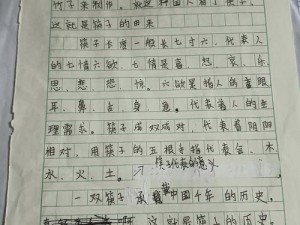 竹子来制作。就这样国人有了筷子。
这就是筷子的由来
筷子长度一般长七寸六，代表人
的七情六欲七情是喜，怒，哀，乐，
思，悲，恐，惊。六欲是指人的眼
耳，鼻，舌，身，意。代表着人的生
理需求。筷子成双成对，代表着阴阳
相对，用筷子的五根手指代表金，木
水，火，土。
筷子代表的意义
一双筷子承载中国千年的历史。
这就是筷子的历史。